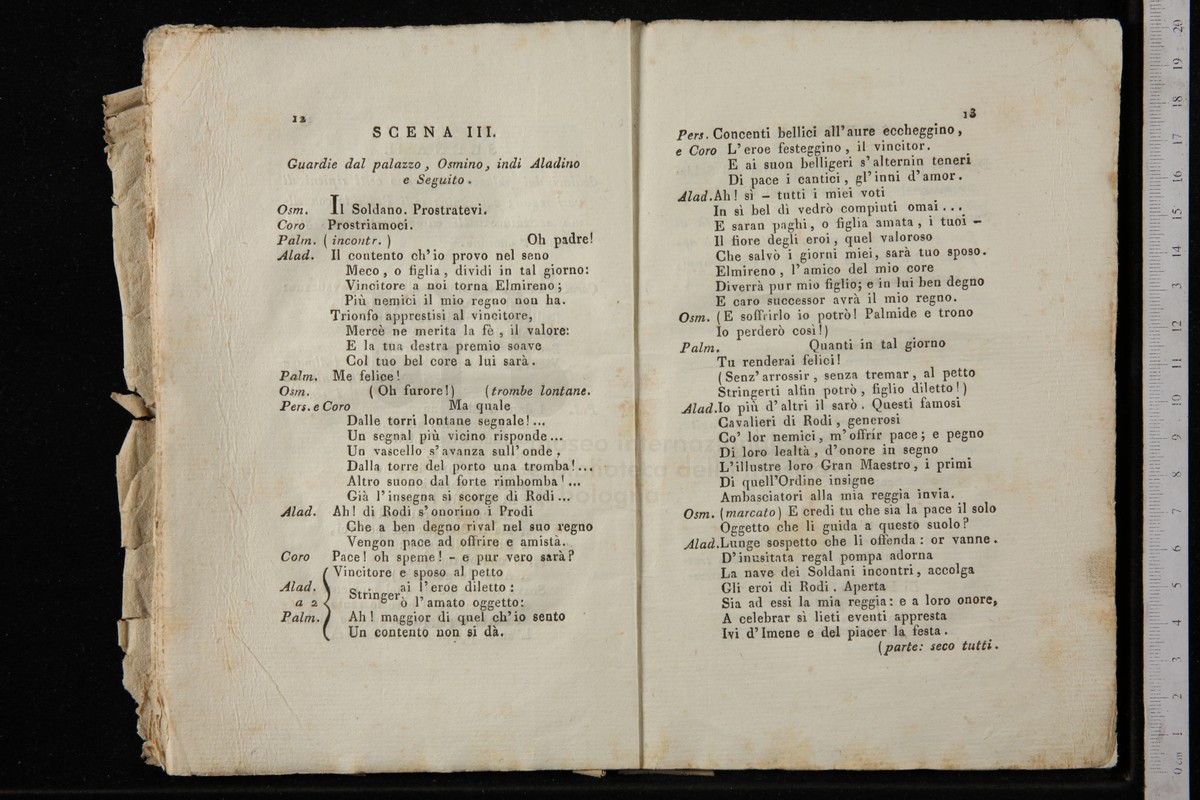 12
SCENA III.
Guardie dal palazzo, Osmino, indi Aladino
e Seguito.
Osm. Il Soldano. Prostratevi.
Coro Prostriamoci.
Palm. (incontr.) Oh padre!
Alad. Il contento ch'io provo nel seno
Meco, o figlia, dividi in tal giorno:
Vincitore a noi torna Elmireno;
Più nemici il mio regno non ha.
Trionfo apprestisi al vincitore,
Mercè ne merita la fè, il valore:
E la tua destra premio soave
Col tuo bel core a lui sarà.
Palm. Me felice!
Osm. (Oh furore!) (trombe lontane.
Pers. e Coro Ma quale
Dalle torri lontane segnale!...
Un segnal più vicino risponde...
Un vascello s'avanza sull'onde.
Dalla torre del porto una tromba!...
Altro suono dal forte rimbomba!...
Già l'insegna si scorge di Rodi...
Alad. Ah! di Rodi s'onorino i Prodi
Che a ben degno rival nel suo regno
Vengon pace ad offrire e amistà.
Coro Pace! oh speme! - e pur vero sarà?
Vincitore e sposo al petto
Alad. Stringerai l'eroe diletto:
a 2 ò l'amato oggetto:
Palm. Ah! maggior di quel ch'io sento
Un contento non si dà.
13
Pers. Concenti bellici all'aure eccheggino,
e Coro L'eroe festeggino, il vincitor.
E ai suon belligeri s'alternin teneri
Di pace i cantici, gl'inni d'amor.
Alad. Ah! sì - tutti i miei voti
In sì bel dì vedrò compiuti omai...
E saran paghi, o figlia amata, i tuoi -
Il fiore degli eroi, quel valoroso
Che salvò i giorni miei, sarà tuo sposo.
Elmireno, l'amico del mio core
Diverrà pur mio figlio; e in lui ben degno
E caro successor avrà il mio regno.
Osm. (E soffrirlo io potrò! Palmide e trono
Io perderò così!)
Palm. Quanti in tal giorno
Tu renderai felici!
(Senz'arrossir, senza tremar, al petto
Stringerti alfin potrò, figlio diletto!)
Alad. Io più d'altri il sarò. Questi famosi
Cavalieri di Rodi, generosi
Co' lor nemici, m'offrir pace; e pegno
Di loro lealtà, d'onore in segno
L'illustre loro Gran Maestro, i primi
Di quell'Ordine insigne
Ambasciatori alla mia reggia invia.
Osm. (marcato) E credi tu che sia la pace il solo
Oggetto che li guida a questo suolo?
Alad. Lunge sospetto che li offenda: or vanne.
D'inusitata regal pompa adorna
La nave dei Soldani incontri, accolga
Gli eroi di Rodi. Aperta
Sia ad essi la mia reggia: e a loro onore,
A celebrar sì lieti eventi appresta
Ivi d'Imene e del piacer la festa.
(parte: seco tutti.